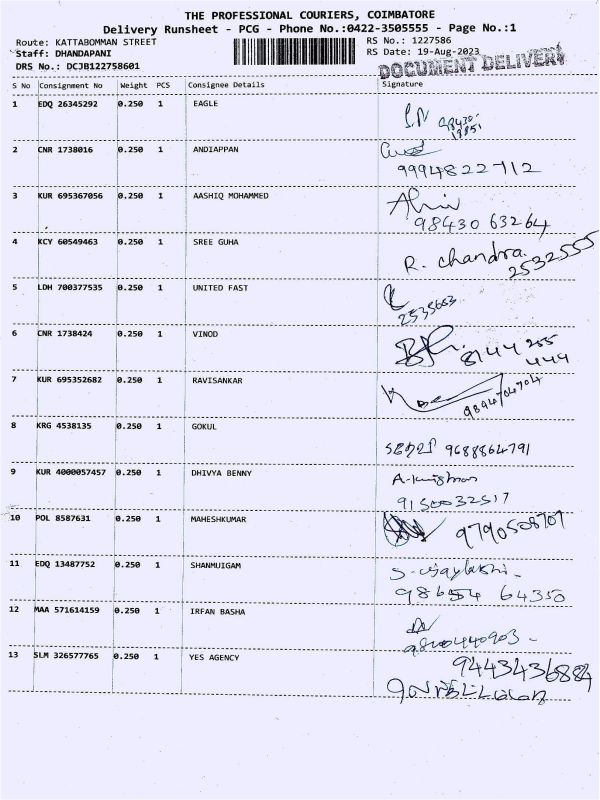 THE PROFESSIONAL COURIERS, COIMBATORE
Delivery Runsheet - PCG - Phone No.:0422-3505555 - Page No.:1
Route: KATTABOMMAN STREET
RS No.: 1227586
Staff: DHANDAPANI
RS Date: 19-Aug-2023
DRS No.: DCJB122758601
DOCUMENT DELIVERY
S No Consignment No Weight PCS Consignee Details Signature
1 EDQ 26345292 0.250 1 EAGLE
2 CNR 1738016 0.250 1 ANDIAPPAN
9994822712
3 KUR 695367056 0.250 1 AASHIQ MOHAMMED
98430 63264
4 KCY 60549463 0.250 1 SREE GUHA
R. chandra.
2532555
5 LDH 700377535 0.250 1 UNITED FAST
2535663
6 CNR 1738424 0.250 1 VINOD
8144 255
444
7 KUR 695352682 0.250 1 RAVISANKAR
9894704704
8 KRG 4538135 0.250 1 GOKUL
9688864791
9 KUR 4000057457 0.250 1 DHIVYA BENNY
9150032517
10 POL 8587631 0.250 1 MAHESHKUMAR
9790508707
11 EDQ 13487752 0.250 1 SHANMUIGAM
98654 64350
12 MAA 571614159 0.250 1 IRFAN BASHA
13 SLM 326577765 0.250 1 YES AGENCY
9443436884